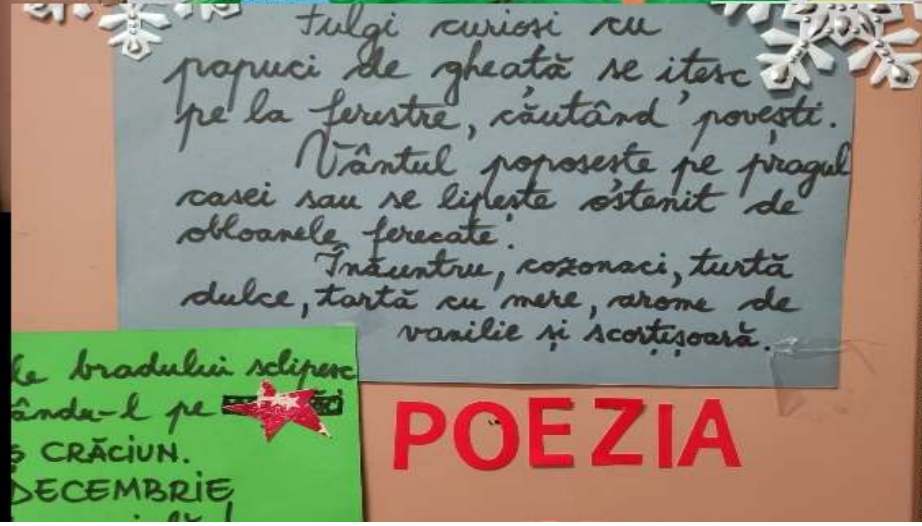 Fulgi curiosi cu
papuci de gheață se ițesc
pe la ferestre, căutând povești.
Vântul poposește pe pragul
casei sau se lipește ostenit de
obloanele ferecate.
Înăuntru, cozonaci, turtă
dulce, tartă cu mere, arome de
vanilie și scorțișoară.
le bradului sclipesc
ându-l pe
Ș CRĂCIUN.
DECEMBRIE
POEZIA